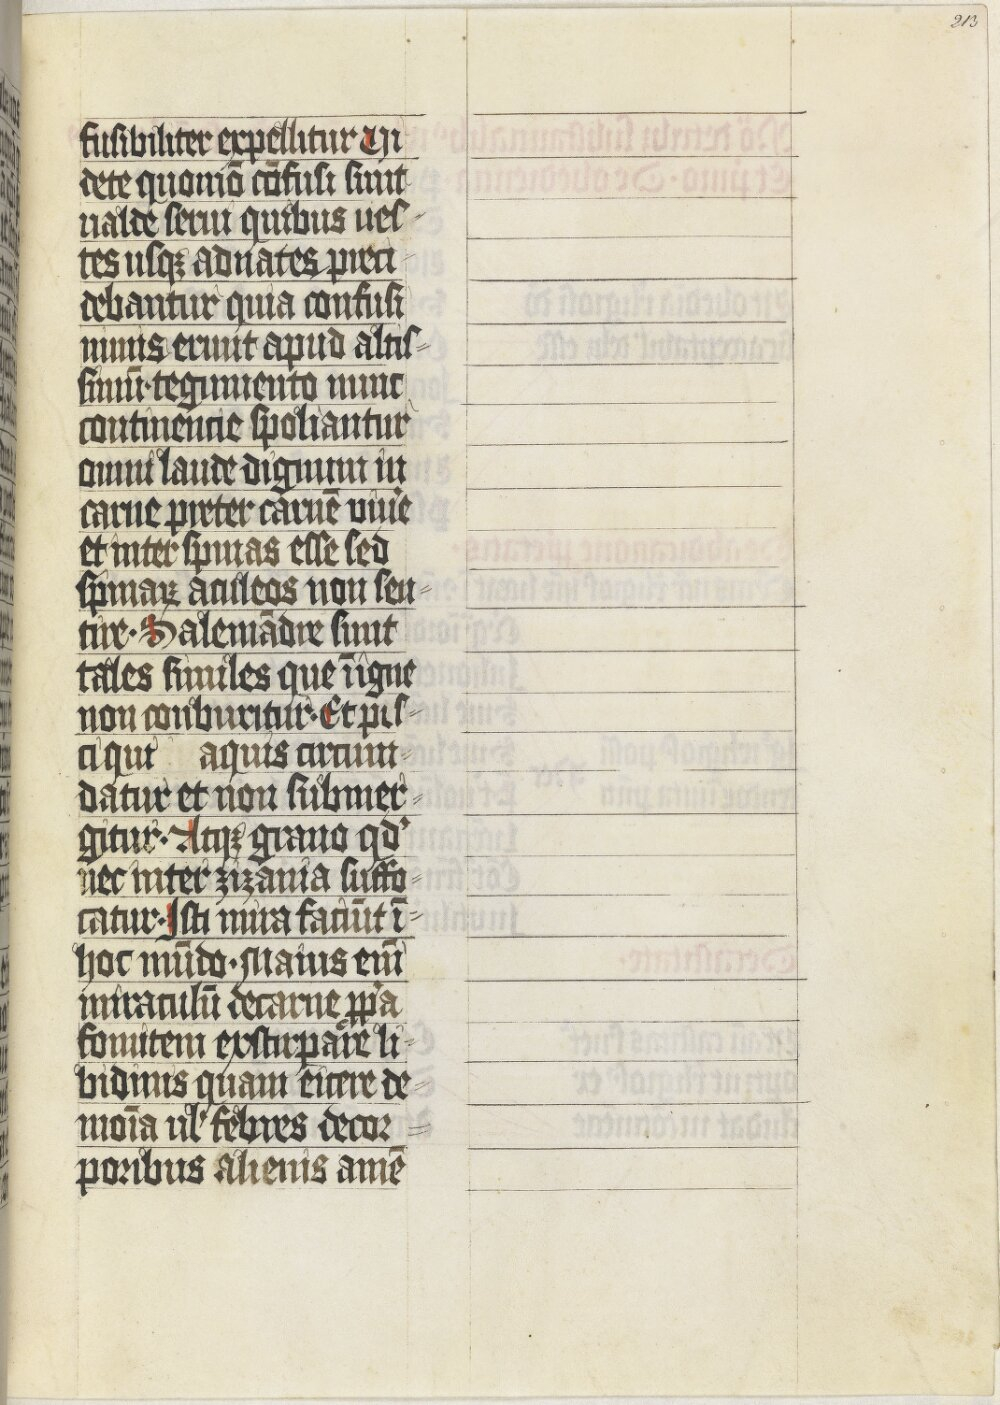 213
fusibiliter expellitur Vi
dete quomō cōfusi sunt
ualde serui quibus ues-
tes usqꝫ ad nates preci-
debantur quia confusi
nimis erunt apud altis-
simū· tegumento nunc
continencie spoliantur
omni laude dignum in
carne preter carnē viuẽ
et inter spinas esse sed
spinaꝝ aculeos non sen-
tire· Salemādre sunt
tales similes que ī igne
non conburitur· Et pis-
ci qui aquis circum-
datur et non submer-
gitur· Atqꝫ grano qd'
nec inter zizania suffo-
catur· Isti mira faciūt ī
hoc mūdo· Maius enī
miraculū de carne ꝓpa
fomitem exstirpare li-
bidinis quam eicere de-
monia ul' febres de cor-
poribus alienis amē